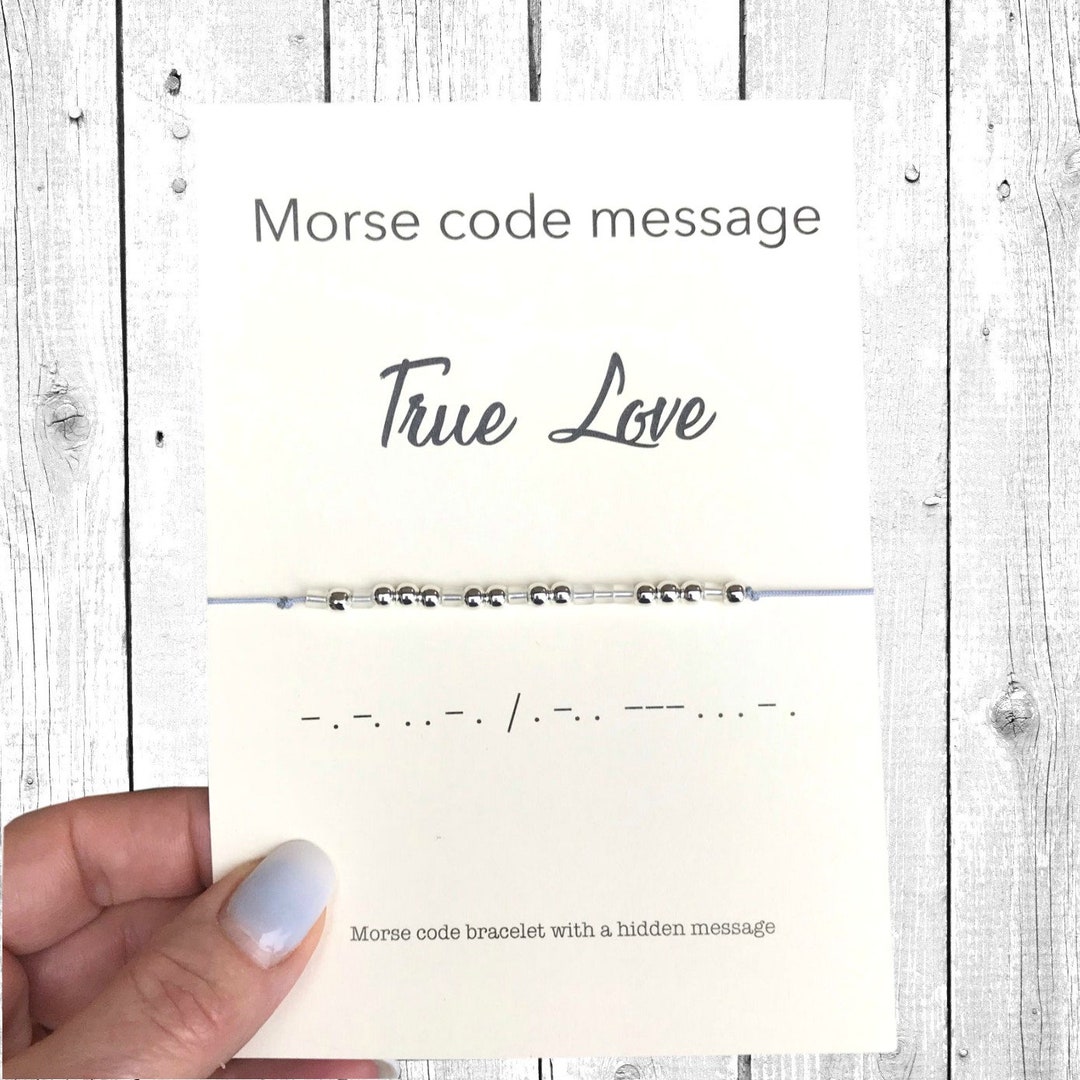 Morse code message
True Love
– . –. . . – . / . –. . ––– . . . – .
Morse code bracelet with a hidden message